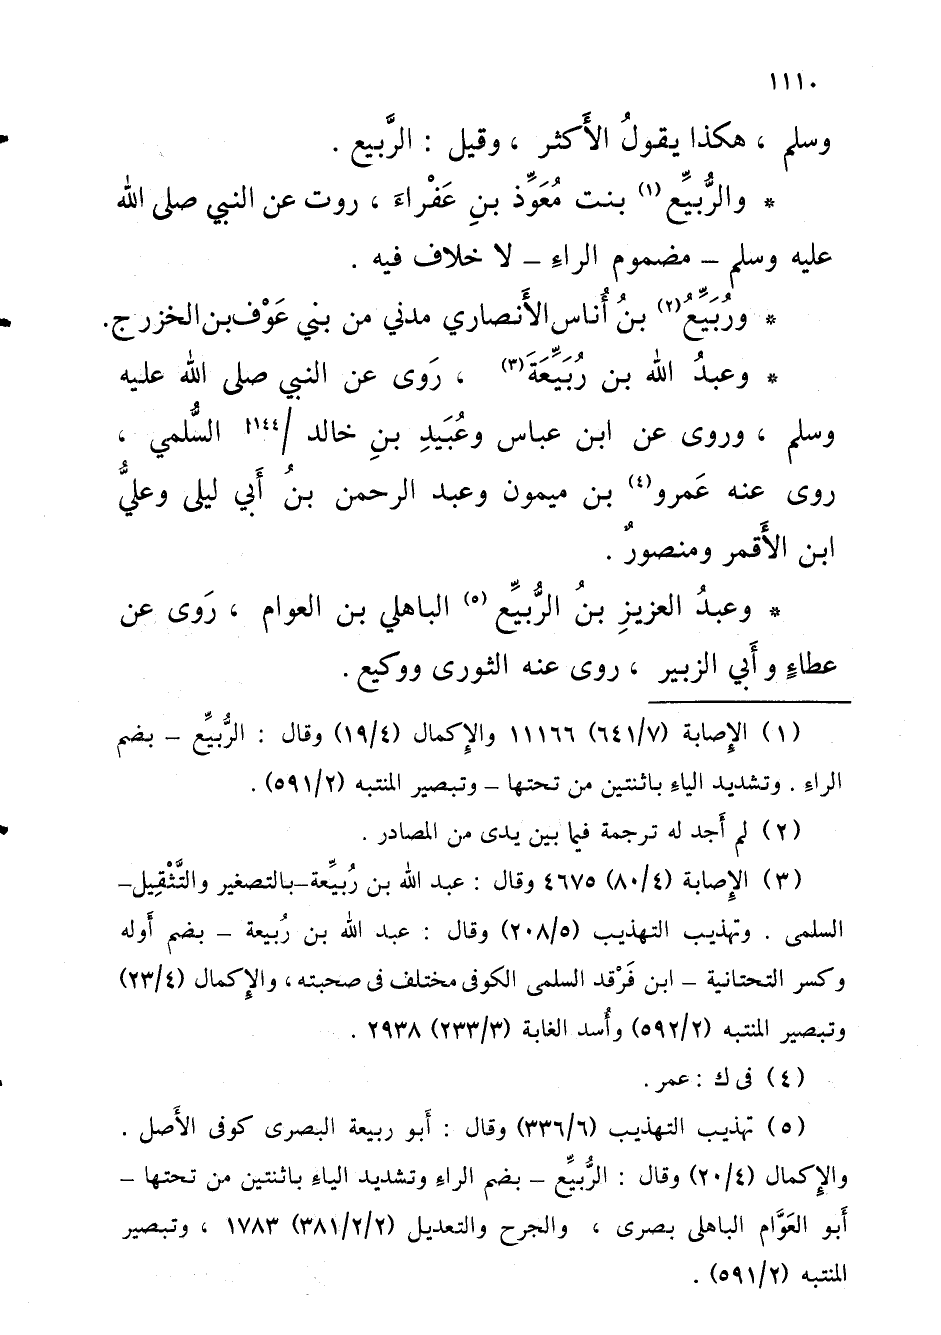 ١١١٠
وسلم ، هكذا يقولُ الأَكثر ، وقيل : الرَّبيع .
* والرُّبيِّع (١) بنت مُعَوِّذ بنِ عَفْراءَ ، روت عن النبي صلى الله
عليه وسلم – مضموم الراءِ – لا خلاف فيه .
* ورُبَيِّعُ (٢) بنُ أُناس الأَنصاري مدني من بني عَوْف بن الخزرج.
* وعبدُ الله بن رُبَيِّعَةَ (٣) ، رَوى عن النبي صلى الله عليه
وسلم ، وروى عن ابن عباس وعُبَيدِ بنِ خالد /١٤٤أ السُّلمي ،
روى عنه عَمرو (٤) بن ميمون وعبد الرحمن بنُ أَبي ليلى وعليُّ
ابن الأَقمر ومنصورٌ .
* وعبدُ العزيزِ بنُ الرُّبيِّع (٥) الباهلي بن العوام ، رَوى عن
عطاءٍ وأَبي الزبير ، روى عنه الثورى ووكيع .
(١) الإصابة (٦٤١/٧) ١١١٦٦ والإكمال (١٩/٤) وقال : الرُّبيِّع – بضم
الراء . وتشديد الياءِ باثنتين من تحتها – وتبصير المنتبه (٥٩١/٢) .
(٢) لم أَجد له ترجمة فيما بين يدى من المصادر .
(٣) الإصابة (٨٠/٤) ٤٦٧٥ وقال : عبد الله بن رُبيِّعة–بالتصغير والتَّثْقِيل–
السلمى . وتهذيب التهذيب (٢٠٨/٥) وقال : عبد الله بن رُبيعة – بضم أَوله
وكسر التحتانية – ابن فَرْقد السلمى الكوفى مختلف فى صحبته ، والإكمال (٢٣/٤)
وتبصير المنتبه (٥٩٢/٢) وأُسد الغابة (٢٣٣/٣) ٢٩٣٨ .
(٤) فى ك : عمر .
(٥) تهذيب التهذيب (٣٣٦/٦) وقال : أَبو ربيعة البصرى كوفى الأَصل .
والإكمال (٢٠/٤) وقال : الرُّبيِّع – بضم الراء وتشديد الياءِ باثنتين من تحتها –
أَبو العَوَّام الباهلى بصرى ، والجرح والتعديل (٣٨١/٢/٢) ١٧٨٣ ، وتبصير
المنتبه (٥٩١/٢) .